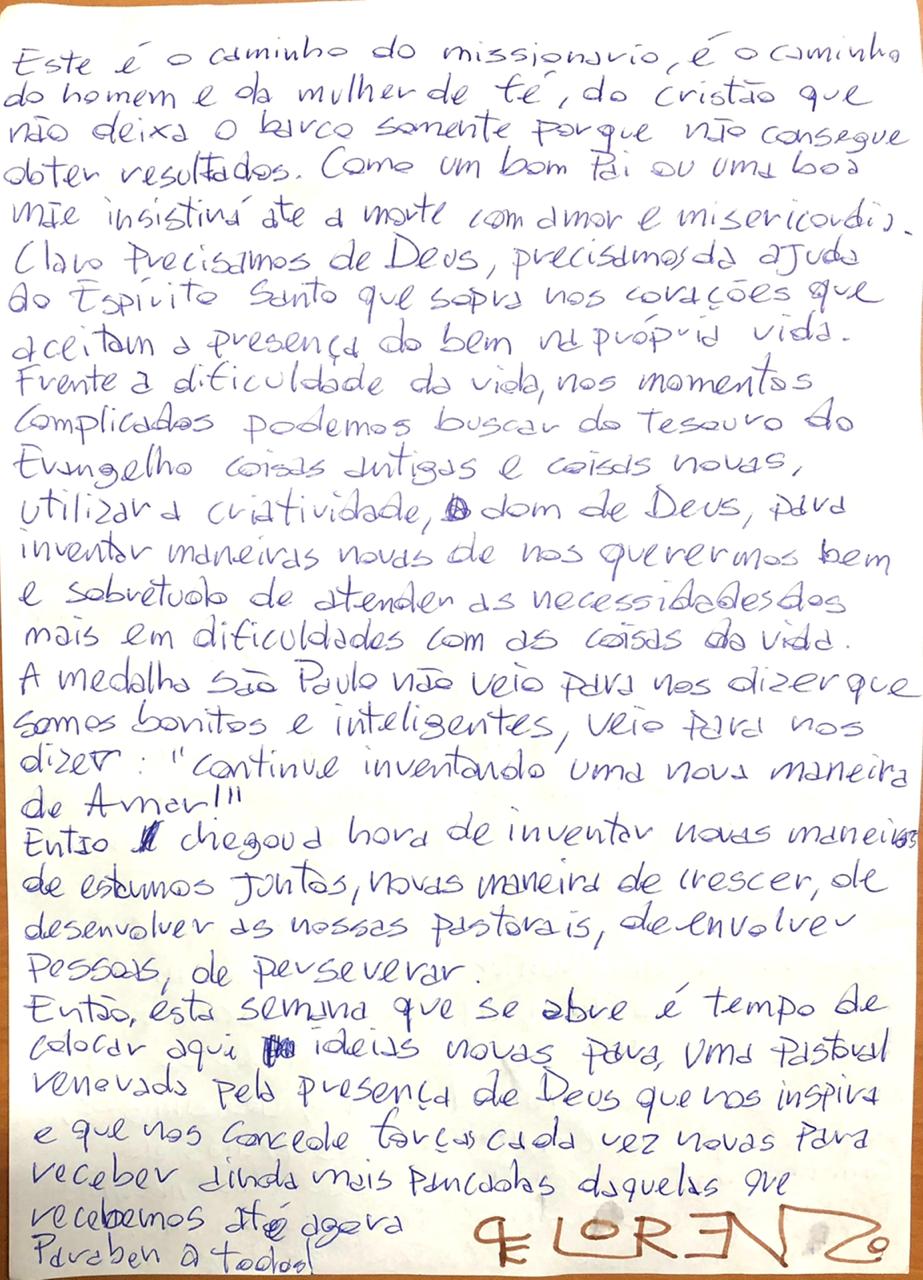 Este é o caminho do missionario, é o caminho
do homem e da mulher de fé, do cristão que
não deixa o barco somente porque não consegue
obter resultados. Como um bom Pai ou uma boa
mãe insistirá ate a morte com amor e misericordia.
Claro Precisamos de Deus, precisamos da ajuda
do Espírito Santo que sopra nos corações que
aceitam a presença do bem na própria vida.
Frente a dificuldade da vida, nos momentos
complicados podemos buscar do tesouro do
Evangelho coisas antigas e coisas novas,
utilizar a criatividade, dom de Deus, para
inventar maneiras novas de nos querermos bem
e sobretudo de atender as necessidades dos
mais em dificuldades com as coisas da vida.
A medalha São Paulo não veio para nos dizer que
somos bonitos e inteligentes, veio para nos
dizer : "continue inventando uma nova maneira
de Amar!!"
Entao chegou a hora de inventar novas maneiras
de estarmos juntos, novas maneira de crescer, de
desenvolver as nossas pastorais, de envolver
Pessoas, de perseverar.
Então, esta semana que se abre é tempo de
colocar aqui ideias novas para, uma Pastoral
renovada pela presença de Deus que nos inspira
e que nos concede forças cada vez novas para
receber ainda mais pancadas daquelas que
recebemos até agora
Paraben a todos!
PE LORENZO